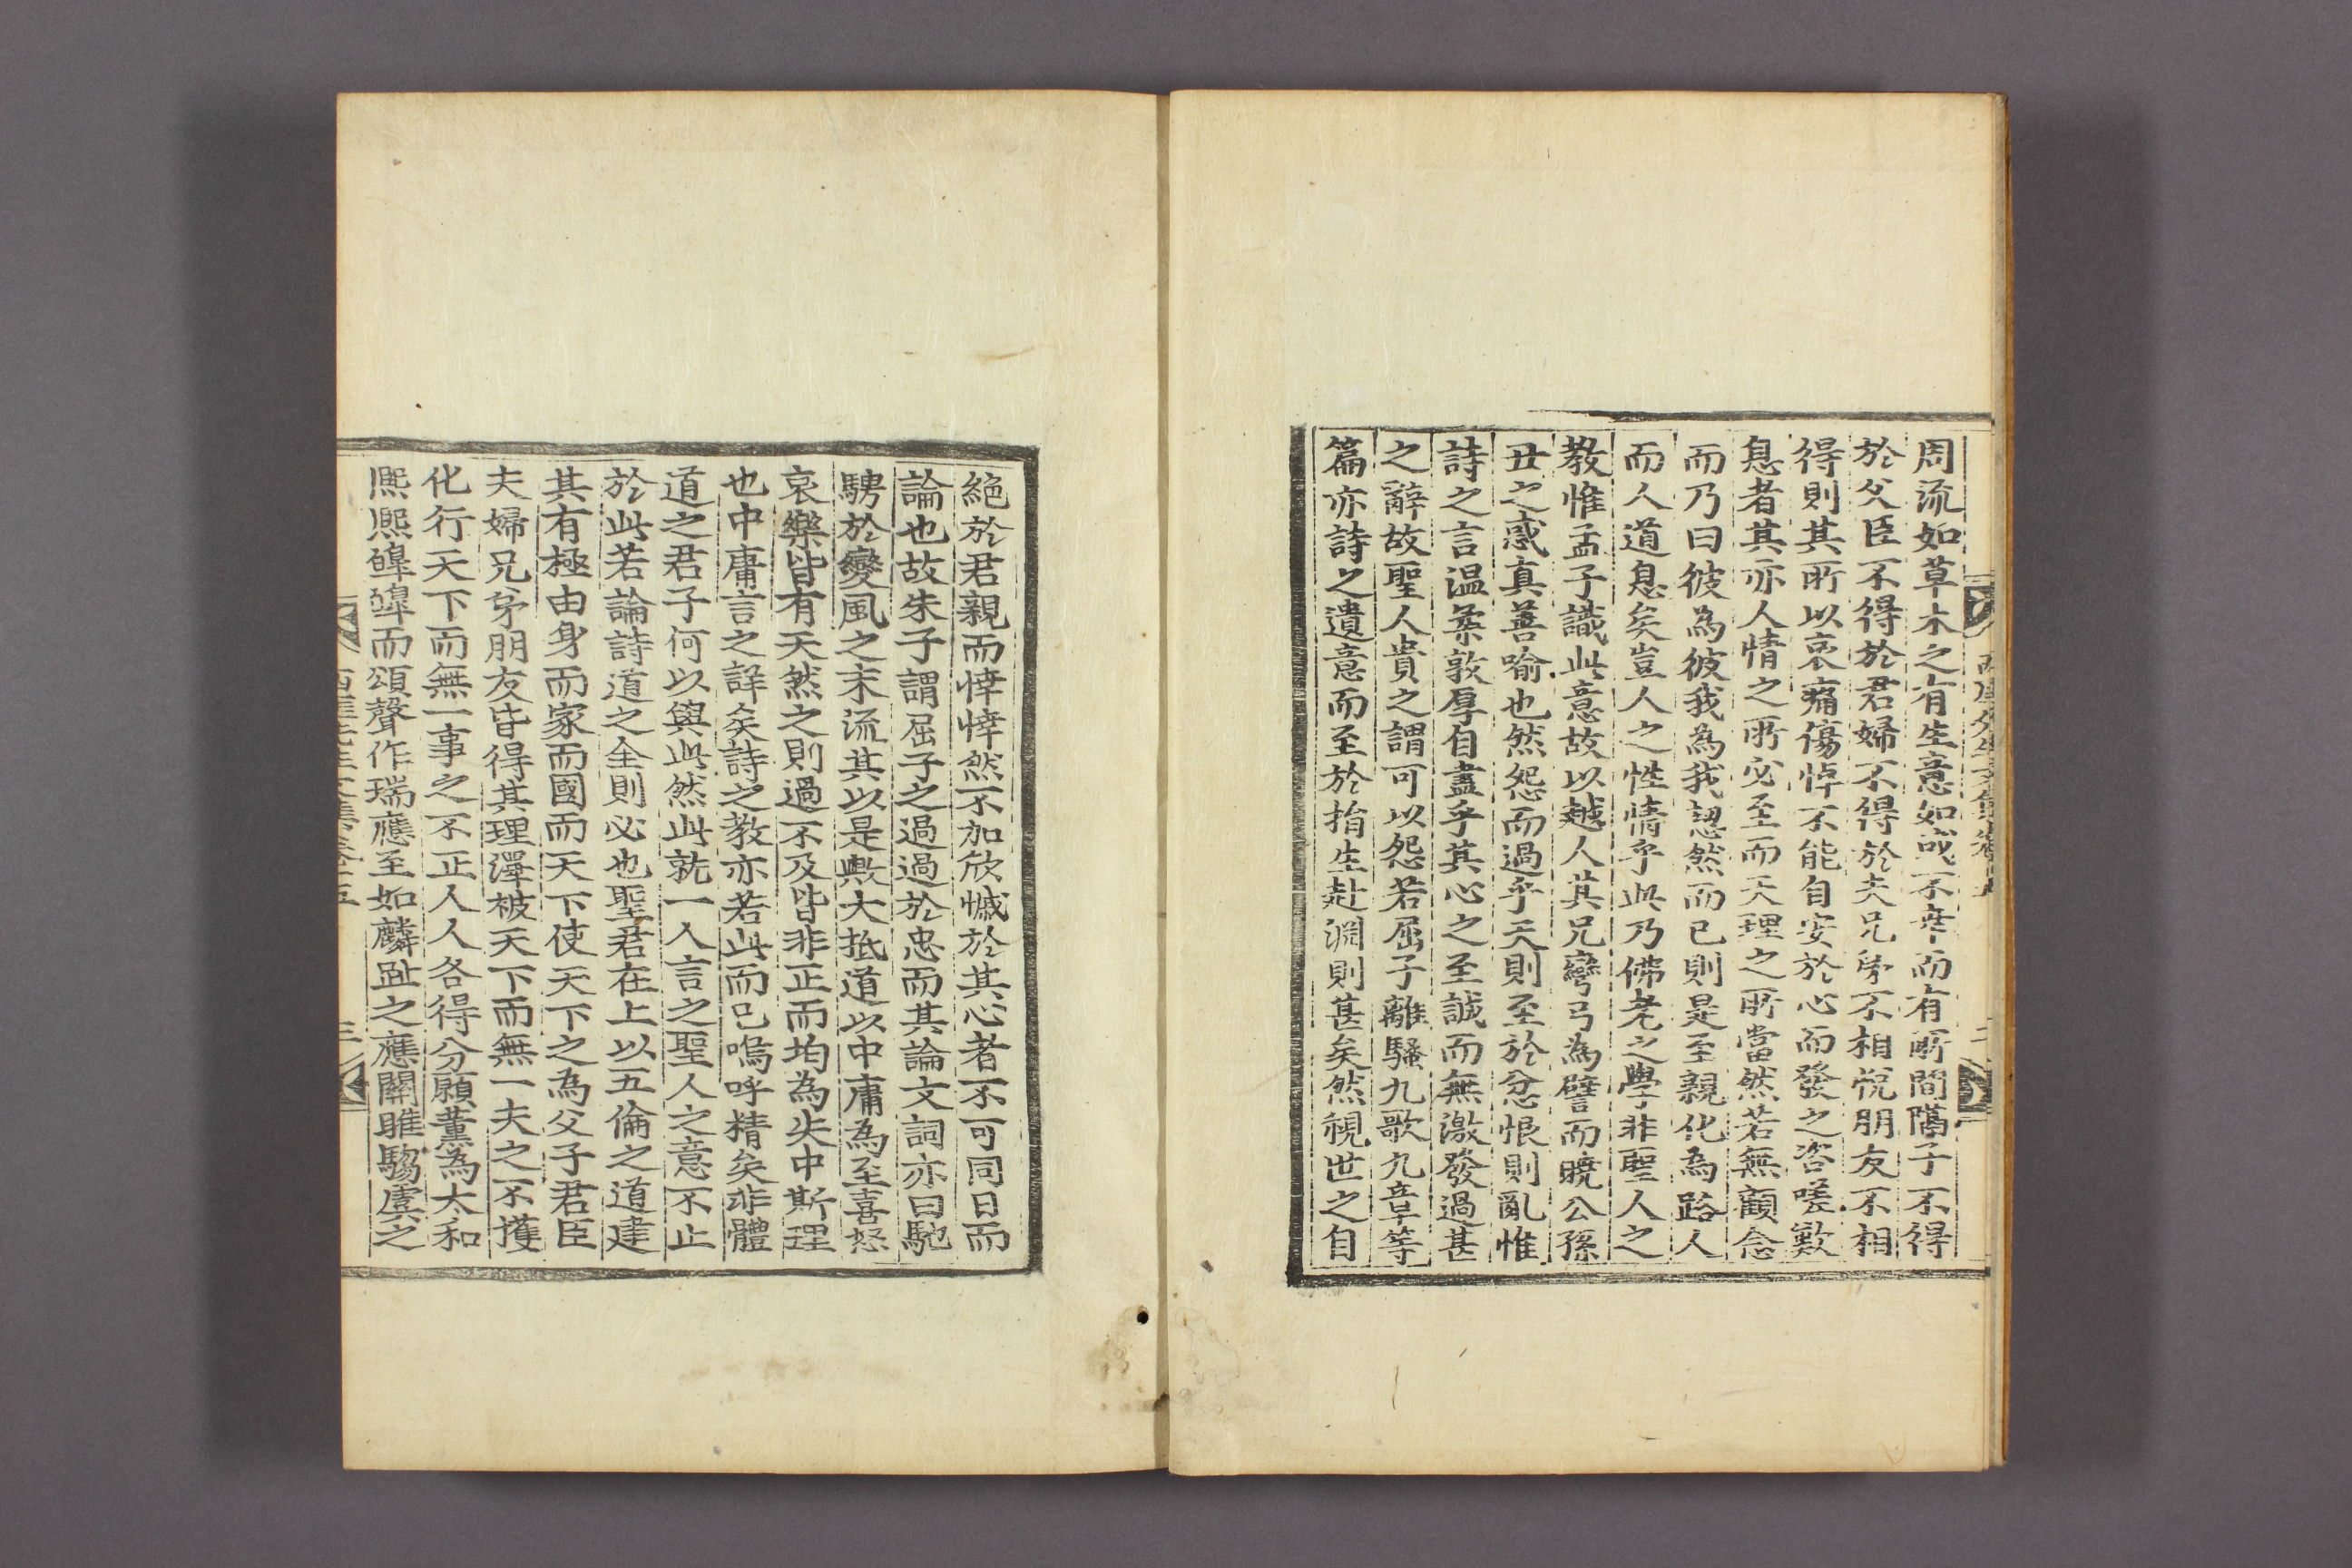 周流如草木之有生意如或不幸而有所間隔子不得
於父臣不得於君婦不得於夫兄弟不相悅朋友不相
得則其所以哀痛傷悼不能自安於心而發之咨嗟歎
息者其亦人情之所必至而天理之所當然若無顧念
而乃曰彼為彼我為我恝然而已則是至親化為路人
而人道息矣豈人之性情乎此乃佛老之學非聖人之
教惟孟子識此意故以越人其兄彎弓為譬而曉公孫
丑之惑真善喻也然怨而過乎天則至於忿恨則亂惟
詩之言温柔敦厚自盡乎其心之至誠而無激發過甚
之辭故聖人貴之謂可以怨若屈子離騷九歌九章等
篇亦詩之遺意而至於捐生赴淵則甚矣然視世之自
絶於君親而悻悻然不加欣慽於其心者不可同日而
論也故朱子謂屈子之過過於忠而其論文詞亦曰馳
騁於變風之末流其以是歟大抵道以中庸為至喜怒
哀樂皆有天然之則過不及皆非正而均為失中斯理
也中庸言之詳矣詩之教亦若此而已嗚呼精矣非體
道之君子何以與此然此就一人言之聖人之意不止
於此若論詩道之全則必也聖君在上以五倫之道建
其有極由身而家而國而天下使天下之為父子君臣
夫婦兄弟朋友皆得其理澤被天下而無一夫之不獲
化行天下而無一事之不正人人各得分願薰為太和
熙熙皥皥而頌聲作瑞應至如麟趾之應關雎騶虞之
西厓先生文集卷十五
三